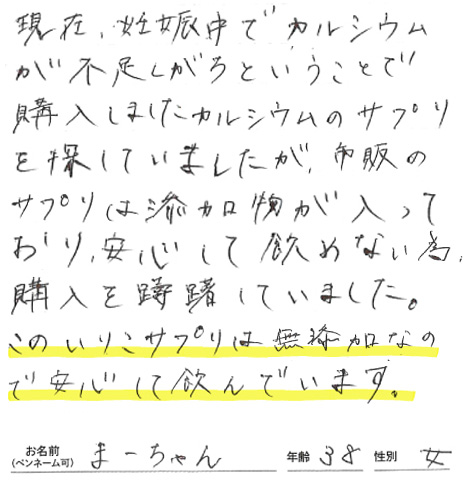 現在、妊娠中でカルシウム
が不足しがちということで
購入しましたカルシウムのサプリ
を探していましたが、市販の
サプリは添加物が入って
おり、安心して飲めない為、
購入を躊躇していました。
このいりこサプリは無添加なの
で安心して飲んでいます。
お名前 (ペンネーム可) まーちゃん 年齢 38 性別 女